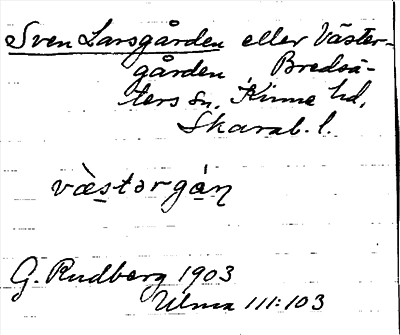 Sven Larsgården eller Väster-
gården Bredsä-
ters sn. Kinne hd,
Skarab. l.
væ̀stərgán
G. Rudberg 1903
Ulma 111:103